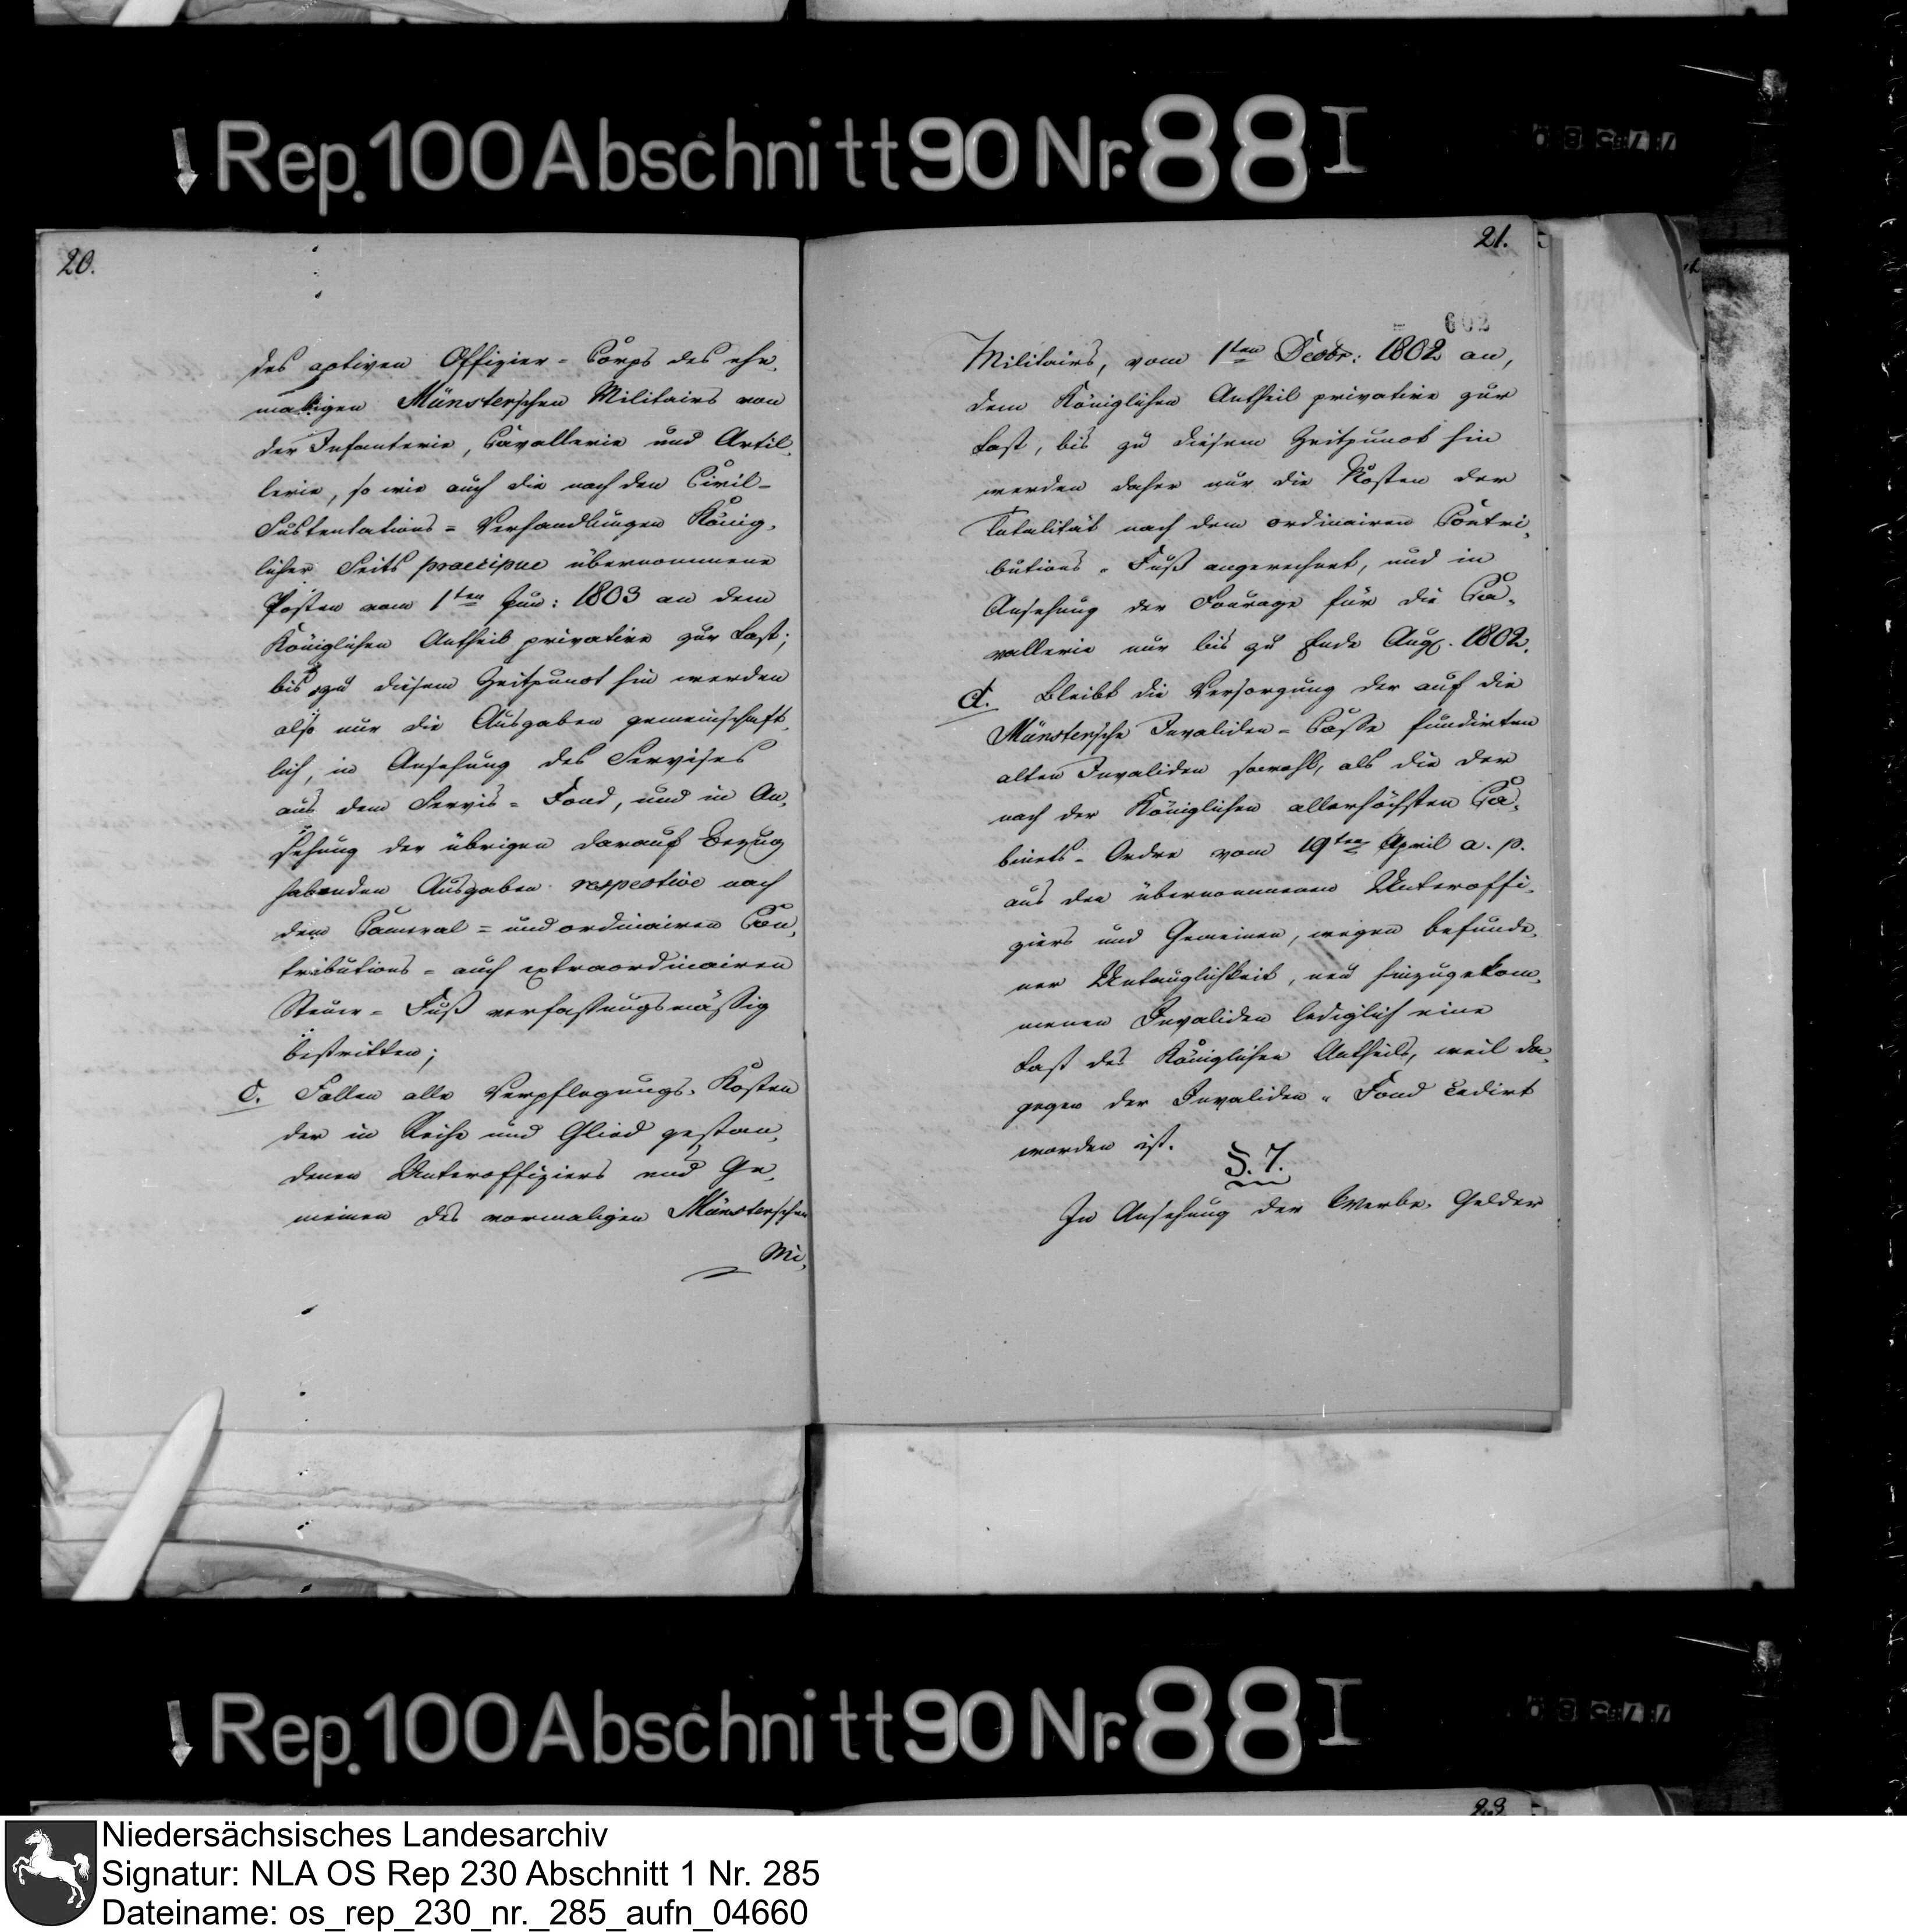 Rep. 100 Abschnitt 90 Nr. 88 I
20.
des activen Offizier=Corps des ehe,
maligen Münsterschen Militairs von
der Infanterie, Cavallerie und Artil,
lerie, so wie auch die nach den Civil=
Sustentations=Verhandlungen König,
licher Seits praecipue übernommene
Posten vom 1ten Jun: 1803 an dem
Königlichen Antheil privative zur Last;
bis zu diesem Zeitpunct hin werden
also nur die Ausgaben gemeinschaft,
lich, in Ansehung des Servises
aus dem Servis=Fond, und in An,
sehung der übrigen darauf Bezug
habenden Ausgaben respective nach
dem Cameral= und ordinairen Con,
tributions= auch extraordinairen
Steuer=Fuß verfassungsmäßig
bestritten;
c. Fallen alle Verpflegungs,Kosten
der in Reihe und Glied gestan,
denen Unteroffiziers und Ge,
meinen des vormaligen Münsterschen
Mi,
21.
602
Militairs, vom 1ten Decbr: 1802 an,
dem Königlichen Antheil privative zur
Last, bis zu diesem Zeitpunct hin
werden daher nur die Kosten der
Totalität nach dem ordinairen Contri,
butions=Fuß angerechnet, und in
Ansehung der Fourage für die Ca,
vallerie nur bis zu Ende Aug. 1802.
d. Bleibt die Versorgung der auf die
Münstersche Invaliden=Casse fundirten
alten Invaliden sowohl, als die der
nach der Königlichen allerhöchsten Ca,
binets=Ordre vom 19ten April a. p.
aus den übernommenen Unteroffi,
ziers und Gemeinen, wegen befunde,
ner Untauglichkeit, neu hinzugekom,
menen Invaliden lediglich eine
Last des Königlichen Antheils, weil da,
gegen der Invaliden=Fond cedirt
worden ist.
§. 7.
In Ansehung der Werbe,Gelder
Rep. 100 Abschnitt 90 Nr. 88 I
Niedersächsisches Landesarchiv
Signatur: NLA OS Rep 230 Abschnitt 1 Nr. 285
Dateiname: os_rep_230_nr._285_aufn_04660